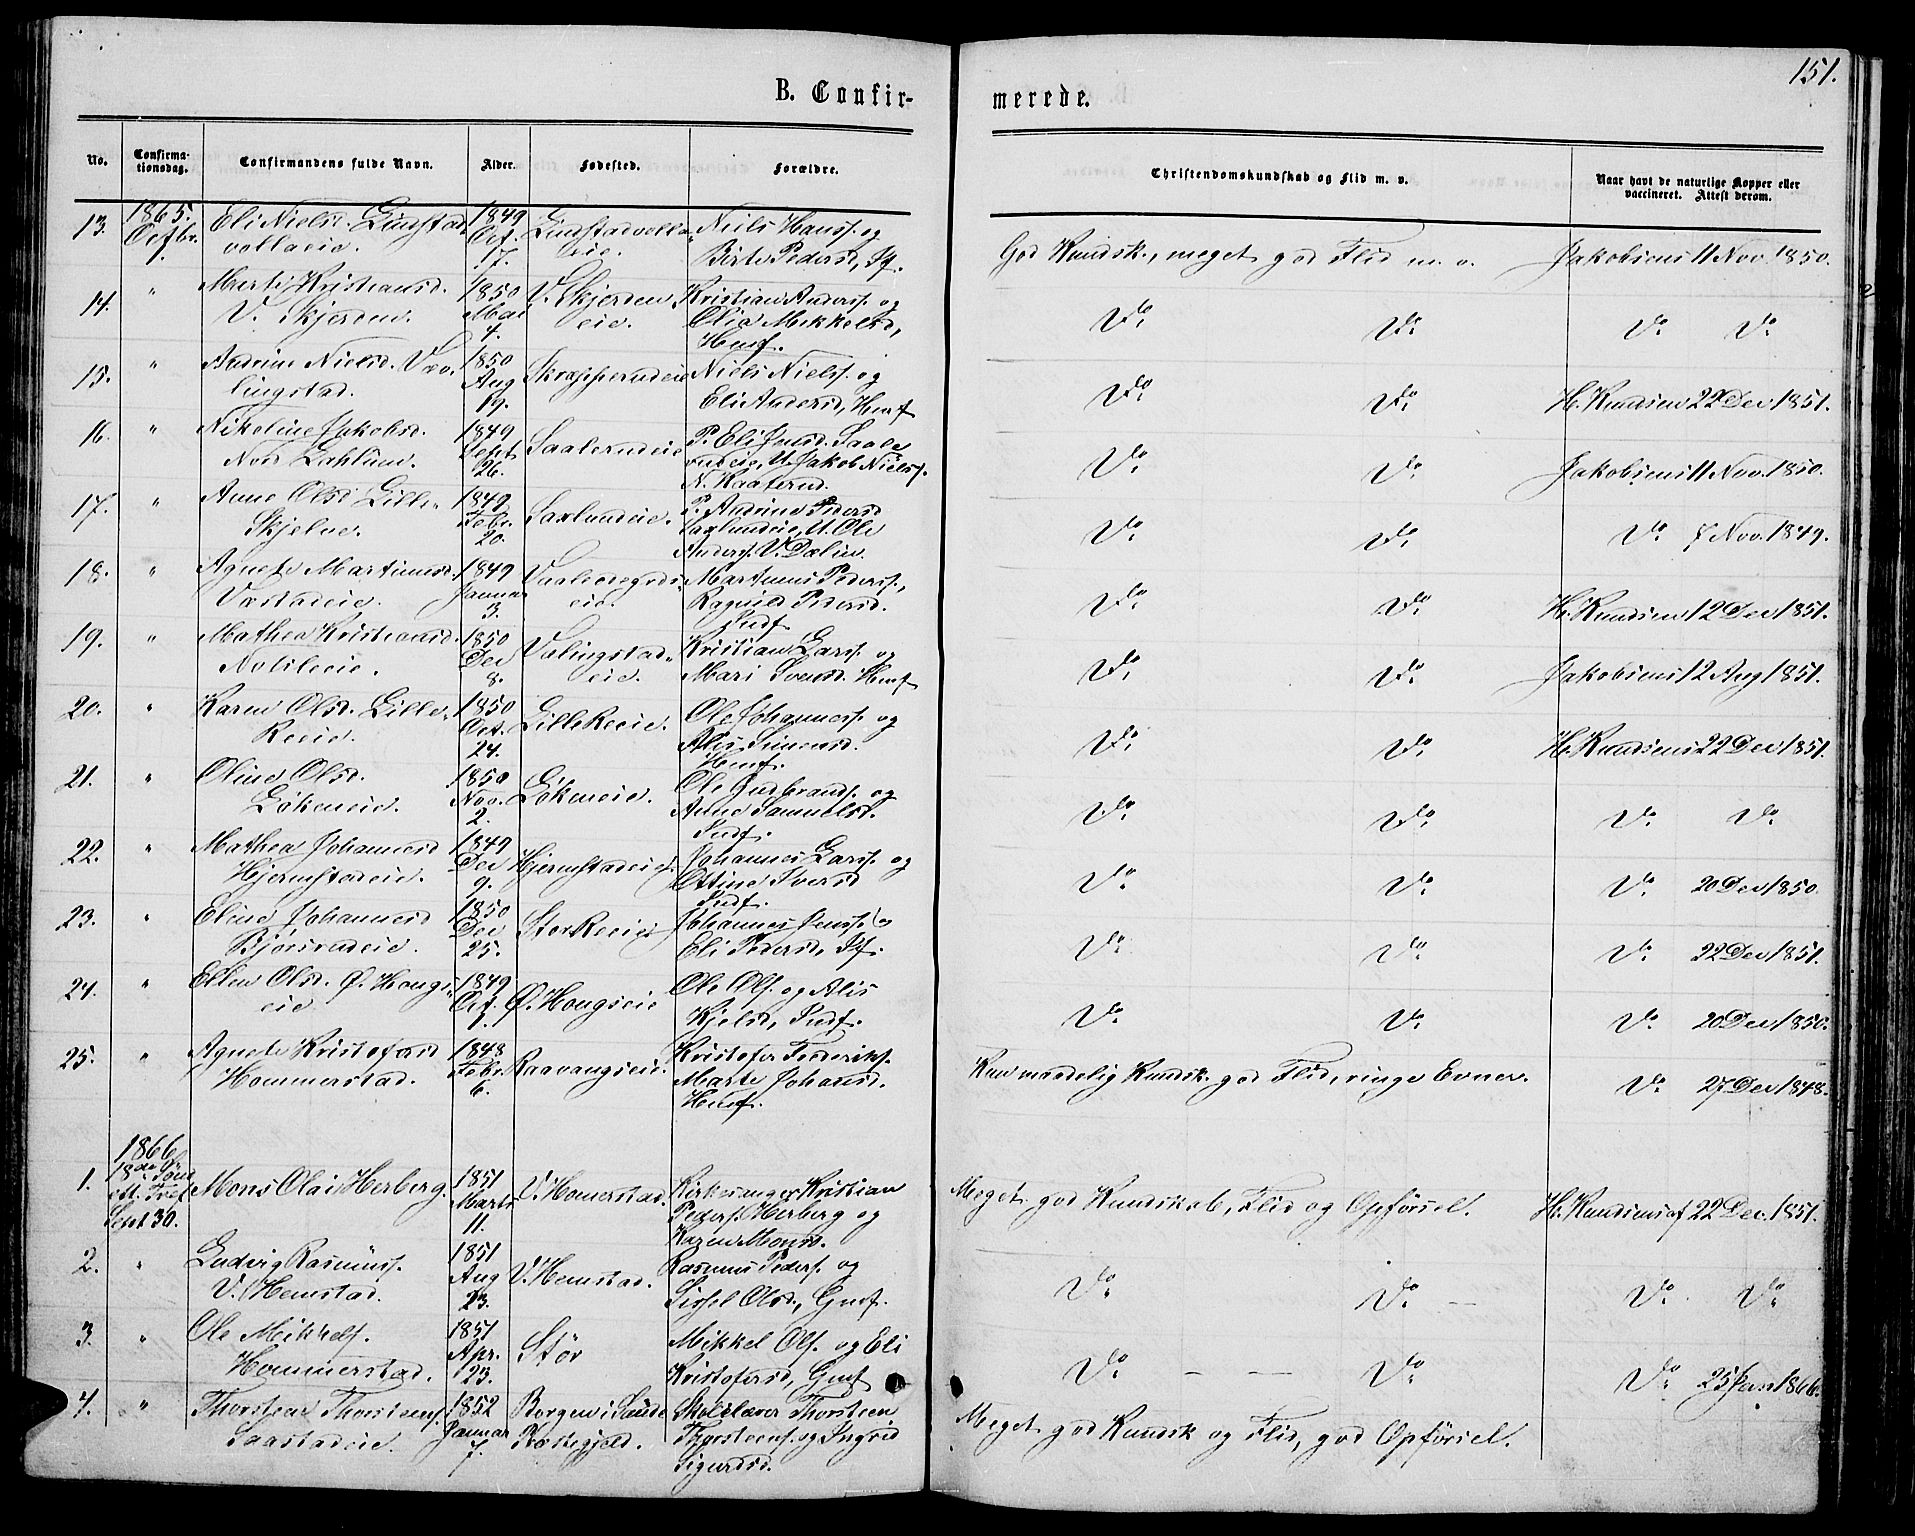 151.
B. Confir-
merede.
No. Confirma-tionsdag. Confirmandens fulde Navn. Alder. Fødested. Forældre. Christendomskundskab og Flid m. v. Naar havt de naturlige Kopper eller vaccineret. Attest derom.
1865.
13. Octbr. 1. Eli Nielsd. Lundstad-
vollaeie. 1849 Oct. 17. Lundstadvolla-
eie. Niels Hanss. og
Birte Pedersd, If. God Kundsk., meget god Flid m. v. Jakobsens 11 Nov. 1850.
14. " Marti Kristiansd.
V. Skjerden. 1850 Mai 4. V. Skjerden-
eie. Kristian Anderss. og
Olia Mikkelsd,
Hmf. Do. Do. Do. Do.
15. " Andrine Nielsd. Væ-
lingstad. 1850 Aug 19. Skopperudeie Niels Nielss. og
Eli Andersd, Hmf Do. Do. H. Knudsen 22 Dec 1851.
16. " Nikoline Jakobsd.
Nord Dahlum. 1849 Sept 26. Saalerudeie P. Eli Jensd. Saale
rudeie, U. Jakob Nielss.
N. Kaaterud. Do. Do. Jakobsens 11 Nov. 1850.
17. " Anne Olsd Lille-
Skjelve. 1849 Febr. 20. Saxlundeie. P. Andrine Pedersd
Saxlundeie, U. Ole
Anderss. V. Dælin. Do. Do. Do. 7 Nov. 1849.
18. " Agnete Martinusd.
Væstadeie. 1849 Januar 3. Vaaleregods-
eie. Martinus Pederss,
Ragnild Pedersd.
Indf. Do. Do. H. Knudsen 12 Dec 1851.
19. " Mathea Kristiansd.
Notsleeie. 1850 Dec 8. Vælingstad-
eie. Kristian Larss. og
Mari Svensd. Hmf Do. Do. Jakobsens 12 Aug 1851.
20. " Karen Olsd. Lille-
Reeie. 1850 Oct. 24. Lille Reeie. Ole Johanness. og
Alis Simensd.
Hmf. Do. Do. H. Knudsens 22 Dec 1851.
21. " Oline Olsd.
Løkeneie. 1850 Nov. 2. Løkeneie. Ole Gudbrands. og
Anne Samuelsd.
Indf. Do. Do. Do. Do.
22. " Mathea Johannesd
Hjermstadeie. 1849 Dec 9. Hjermstadeie Johannes Larss. og
Ottine Iversd
Indf. Do. Do. Do. 20 Dec 1850.
23. " Eline Johannesd
Bjørsrudeie. 1850 Dec 25. Stor Reeie Johannes Jenss. og
Eli Pedersd, If. Do. Do. Do. 22 Dec 1851.
24. " Ellen Olsd. Ø. Haugs-
eie 1849 Oct. 1. Ø. Haugseie Ole Ols. og Alis
Kjelsd, Indf. Do. Do. Do. 20 Dec 1850.
25. " Agnete Kristofersd
Hommerstad. 1848 Febr. 6. Raavangseie. Kristofer Frederiks.
Marte Johansd.
Hmf. Kun maadelig Kundsk. god Flid, ringe Evner. Do. 27 Dec 1848.
1866
1. 18de Sønd
e. Tref.
Sept 30. Mons Olai Herberg. 1851 Marts 11. V. Homerstad. Kirkesanger Kristian
Peders. Herberg og
Karen Monsd. Meget god Kundskab, Flid og Opførsel. H. Knudsens af 22 Dec. 1851.
2. " Ludvig Rasmuss.
V. Hemstad. 1851 Aug 23. V. Hemstad. Rasmus Peders. og
Sissel Olsd., Gmf. Do. Do. Do. Do.
3. " Ole Mikkels.
Hommerstad. 1851 Apr. 23. Stør Mikkel Ols. og Eli
Kristofersd, Gmf Do. Do. Do. 25 Jan 1866.
4. " Thorstein Thorsteens.
Saastadeie. 1852 Januar 7. Borgen i Saude
Præstegjeld. Skolelærer Thorsteen
Thorsteens. og Ingrid
Sigurdsd. Meget god Kundsk og Flid, god Opførsel.